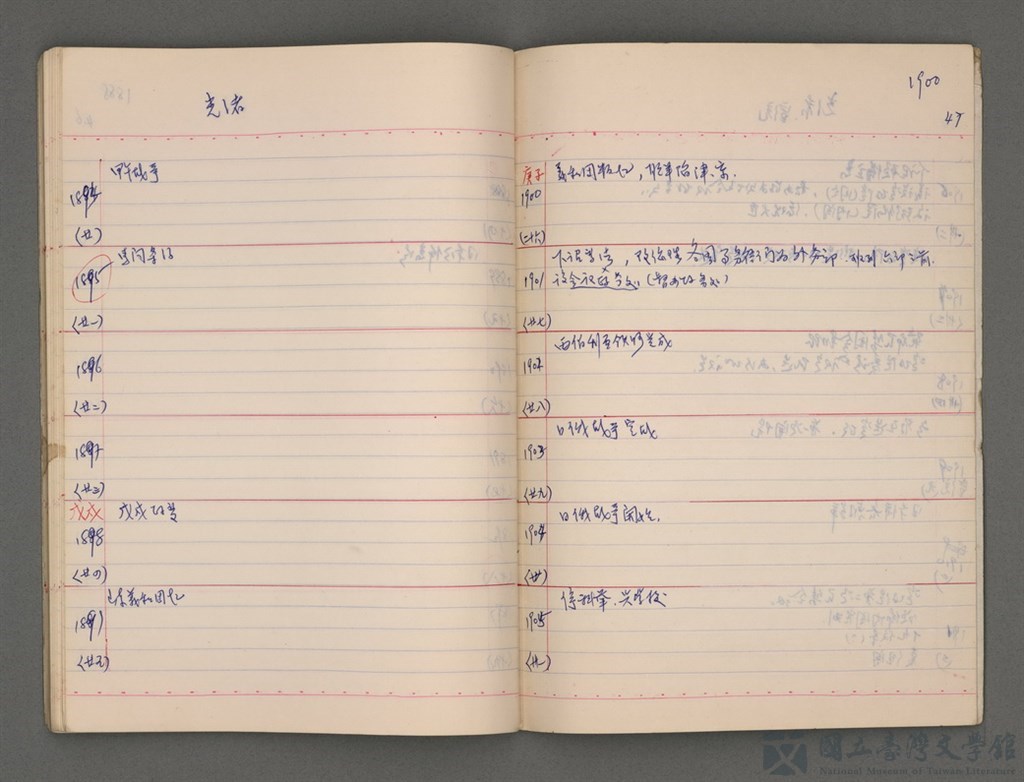 光绪
甲午战争
1894
(廿)
馬関条約
1895
(廿一)
1896
(廿二)
1897
(廿三)
戊戌
戊戌政变
1898
(廿四)
義和团起
1899
(廿五)
1900
47
庚子
義和团起,联軍陷津、京.
1900
(二十六)
下诏变法,改总理各国事务衙门为外务部
1901
(廿七)
西伯利亚铁路完成
1902
(廿八)
日俄战争
1903
(廿九)
日俄战争開始.
1904
(卅)
停科举.兴学校
1905
(卅一)
國立臺灣文學館
National Museum of Taiwan Literature